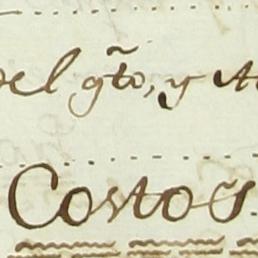 del gto, y
Costos